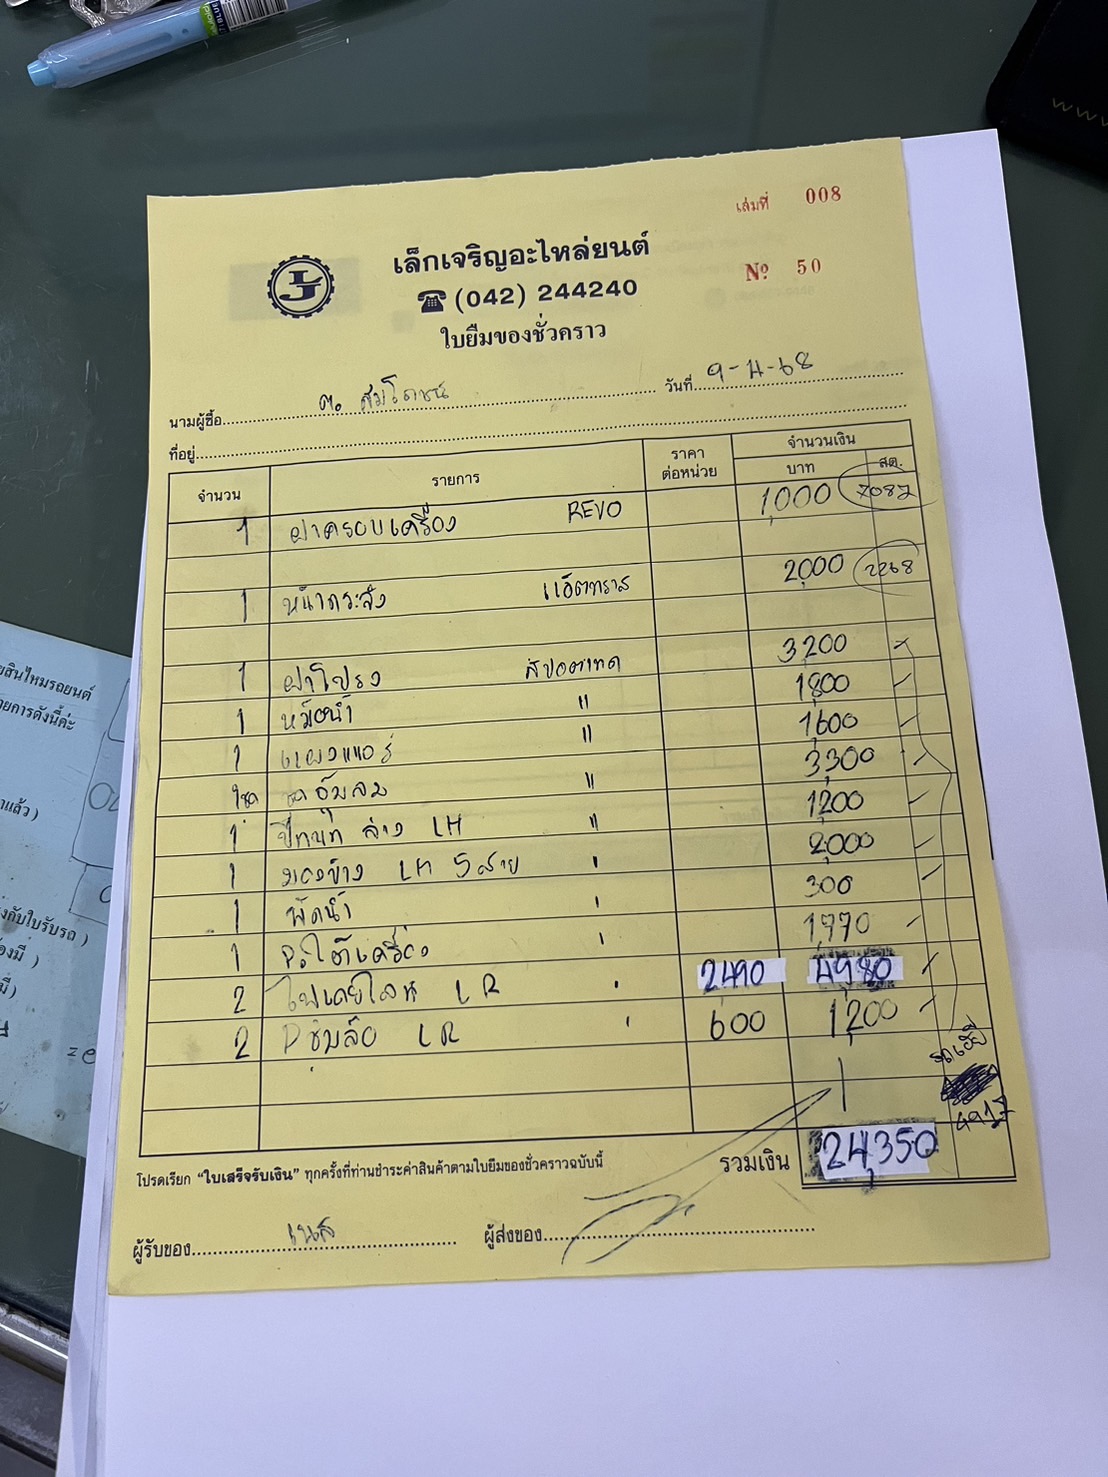 เล่มที่ 008
เล็กเจริญอะไหล่ยนต์
Nº 50
☎ (042) 244240
ใบยืมของชั่วคราว
นามผู้ซื้อ ค. สมโภชน์ วันที่ 9-4-68
ที่อยู่
จำนวน รายการ ราคาต่อหน่วย จำนวนเงิน
บาท สต.
1 ฝาครอบเครื่อง REVO 1,000 7087
1 หน้ากระจัง 2,000 2268
1 ฝาโปรง 3,200
1 หม้อน้ำ " 1,800
1 แผงแอร์ " 1,600
1ชุด ชุด อุ้มลม " 3,300
1 ปีกนก ล่าง LH " 1,200
1 LH 5 สาย " 2,000
1 พัดน้ำ " 300
1 " 1770
2 LR " 2490 4,980
2 LR " 600 1,200
4917
โปรดเรียก "ใบเสร็จรับเงิน" ทุกครั้งที่ท่านชำระค่าสินค้าตามใบยืมของชั่วคราวฉบับนี้ รวมเงิน 24,350
ผู้รับของ ผู้ส่งของ